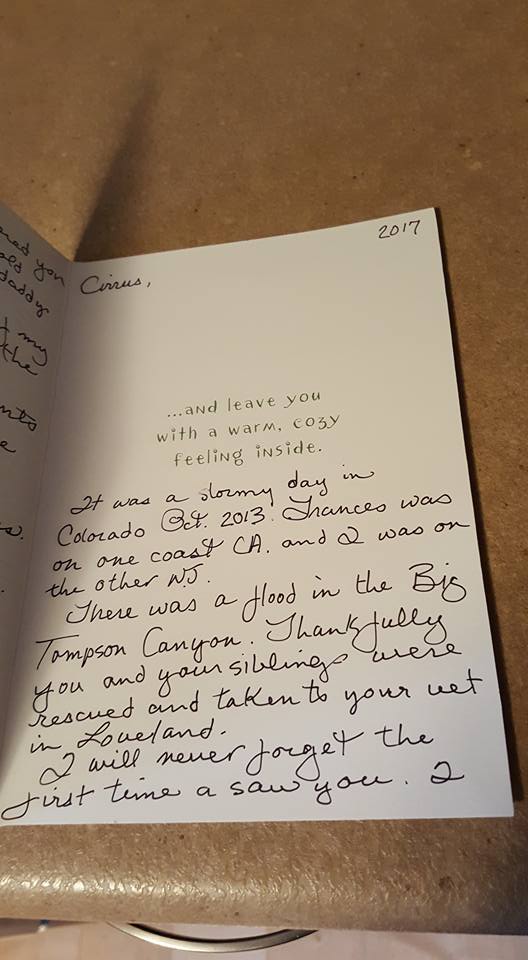 ned you
old
daddy
t my
the
nts
e
s.
2017
Cirrus,
...and leave you
with a warm, cozy
feeling inside.
It was a stormy day in
Colorado Oct. 2013. Frances was
on one coast CA. and I was on
the other NJ.
There was a flood in the Big
Tompson Canyon. Thankfully
you and your siblings were
rescued and taken to your vet
in Loveland.
I will never forget the
first time a saw you. I